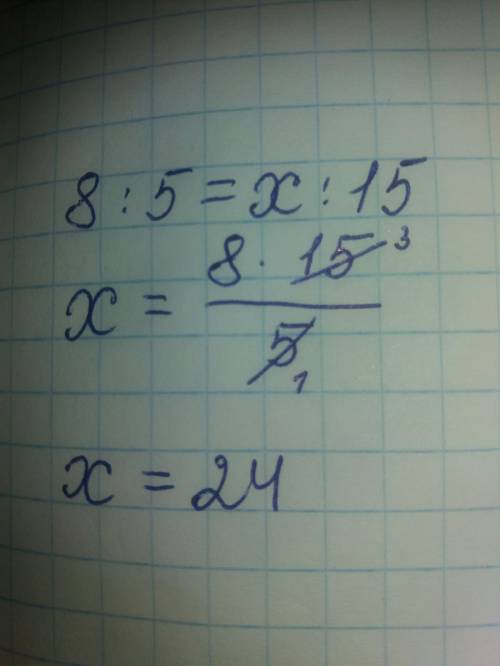 8 : 5 = x : 15
x = \frac{8 \cdot \cancel{15}^{3}}{\cancel{5}_{1}}
x = 24